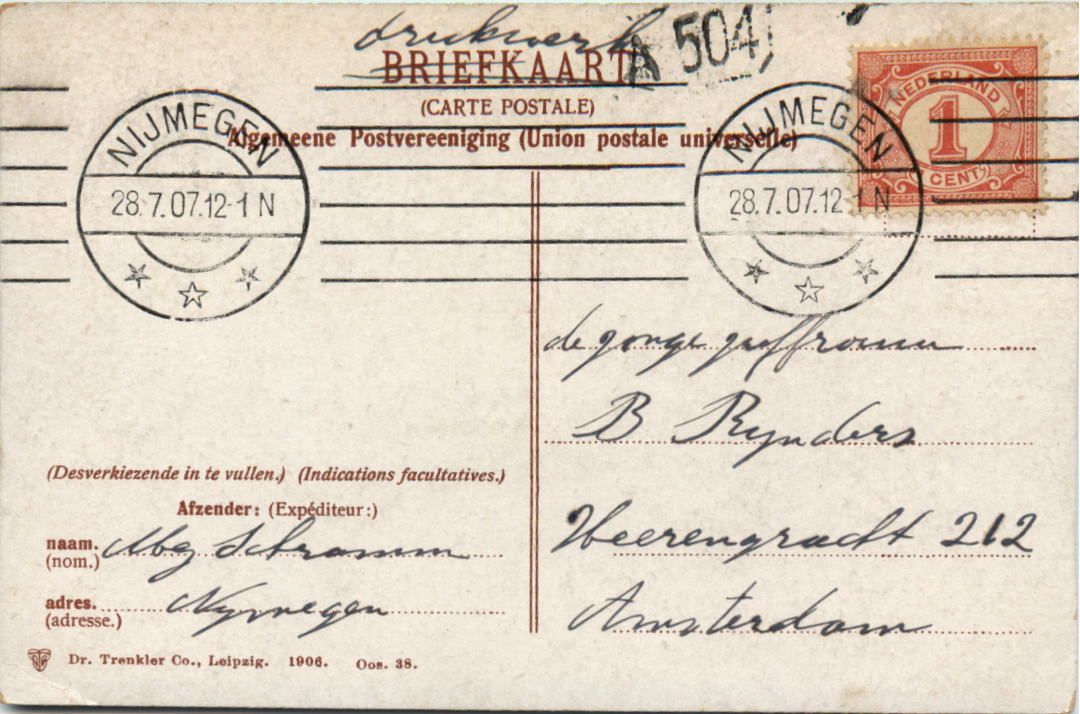 drukwerk
BRIEFKAART
A 504
(CARTE POSTALE)
Algemeene Postvereeniging (Union postale universelle)
NEDERLAND
1
1 CENT
NIJMEGEN
28.7.07.12-1 N
NIJMEGEN
28.7.07.12-1 N
de jonge juffrouw
B Rynders
Heerengracht 212
Amsterdam
(Desverkiezende in te vullen.) (Indications facultatives.)
Afzender: (Expéditeur:)
naam. Schramm
(nom.)
adres. Nymegen
(adresse.)
Dr. Trenkler Co., Leipzig. 1906. Oos. 38.